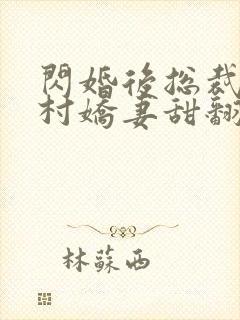 閃婚後總裁
村嬌妻甜翻
林蘇西